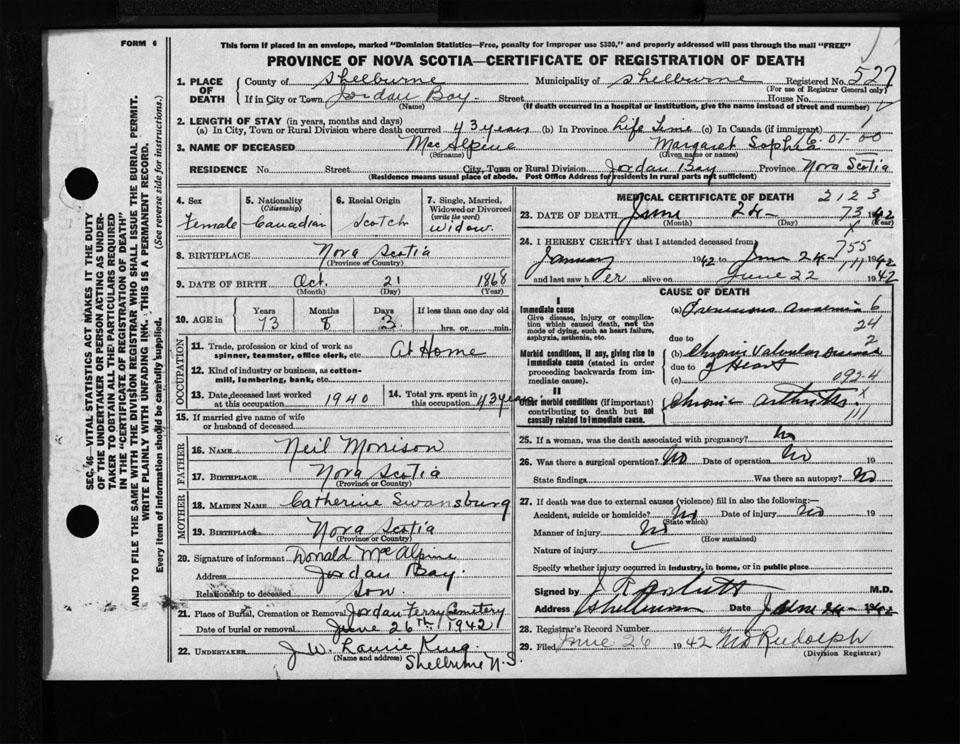 FORM 6
This form if placed in an envelope, marked "Dominion Statistics—Free, penalty for improper use $300," and properly addressed will pass through the mail "FREE"
PROVINCE OF NOVA SCOTIA—CERTIFICATE OF REGISTRATION OF DEATH
SEC. 46 — VITAL STATISTICS ACT MAKES IT THE DUTY
OF THE UNDERTAKER OR PERSON ACTING AS UNDER-
TAKER TO OBTAIN ALL THE PARTICULARS REQUIRED
IN THE "CERTIFICATE OF REGISTRATION OF DEATH"
AND TO FILE THE SAME WITH THE DIVISION REGISTRAR WHO SHALL ISSUE THE BURIAL PERMIT.
WRITE PLAINLY WITH UNFADING INK. THIS IS A PERMANENT RECORD.
Every item of information should be carefully supplied. (See reverse side for instructions.)
1. PLACE OF DEATH County of Shelburne Municipality of Shelburne Registered No. 527
(For use of Registrar General only)
If in City or Town Jordan Bay Street House No.
(Name) (If death occurred in a hospital or institution, give the name instead of street and number)
2. LENGTH OF STAY (in years, months and days)
(a) In City, Town or Rural Division where death occurred 43 years (b) In Province Life Time (c) In Canada (if immigrant)
3. NAME OF DECEASED MacAlpine Margaret Sophia 01-00
(Surname) (Given name or names)
RESIDENCE No. Street City, Town or Rural Division Jordan Bay Province Nova Scotia
(Residence means usual place of abode. Post Office Address for residents in rural parts not sufficient)
4. Sex Female
5. Nationality (Citizenship) Canadian
6. Racial Origin Scotch
7. Single, Married, Widowed or Divorced (write the word) Widow
8. BIRTHPLACE Nova Scotia
(Province or Country)
9. DATE OF BIRTH Oct. 21 1868
(Month) (Day) (Year)
10. AGE in Years 73 Months 8 Days 3 If less than one day old hrs. or min.
OCCUPATION
11. Trade, profession or kind of work as spinner, teamster, office clerk, etc. At Home
12. Kind of industry or business, as cotton-mill, lumbering, bank, etc.
13. Date deceased last worked at this occupation 1940
14. Total yrs. spent in this occupation 43 years
15. If married give name of wife or husband of deceased
FATHER
16. NAME Neil Morrison
17. BIRTHPLACE Nova Scotia
(Province or Country)
MOTHER
18. MAIDEN NAME Catherine Swansburg
19. BIRTHPLACE Nova Scotia
(Province or Country)
20. Signature of informant Donald McAlpine
Address Jordan Bay.
Relationship to deceased Son.
21. Place of Burial, Cremation or Removal Jordan Ferry Cemetery
Date of burial or removal June 26th 1942
22. UNDERTAKER J. W. Laurie King.
(Name and address) Shelburne N.S.
MEDICAL CERTIFICATE OF DEATH 2123
23. DATE OF DEATH June 24 1942
(Month) (Day) (Year)
73
24. I HEREBY CERTIFY that I attended deceased from 755
January 1942 to June 24 1942
and last saw her alive on June 22 1942
CAUSE OF DEATH
I
Immediate cause
Give disease, injury or complication which caused death, not the mode of dying, such as heart failure, asphyxia, asthenia, etc.
(a) Pernicious Anaemia 6
24
due to 2
Morbid conditions, if any, giving rise to immediate cause (stated in order proceeding backwards from immediate cause).
(b) Chronic Valvular Disease
due to of Heart
(c) 092.4
II
Other morbid conditions (if important) contributing to death but not causally related to immediate cause.
Chronic Arthritis
25. If a woman, was the death associated with pregnancy? No
26. Was there a surgical operation? No Date of operation No 19
State findings Was there an autopsy? No
27. If death was due to external causes (violence) fill in also the following:—
Accident, suicide or homicide? No Date of injury No 19
(State which)
Manner of injury No
(How sustained)
Nature of injury
Specify whether injury occurred in industry, in home, or in public place
Signed by M.D.
Address Shelburne Date June 24 1942
28. Registrar's Record Number
29. Filed June 26 1942 Rudolph
(Division Registrar)